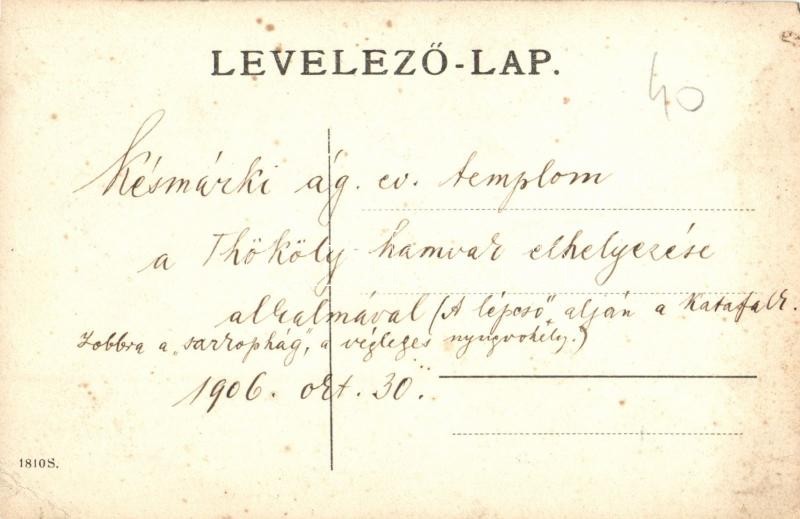 LEVELEZŐ-LAP.
40
Késmárki ág. ev. templom
a Thököly hamvak elhelyezése
alkalmával (A lépcső alján a Katafalk.
Jobbra a „sarkophág”, a végleges nyugvóhely.)
1906. okt. 30.
1810S.